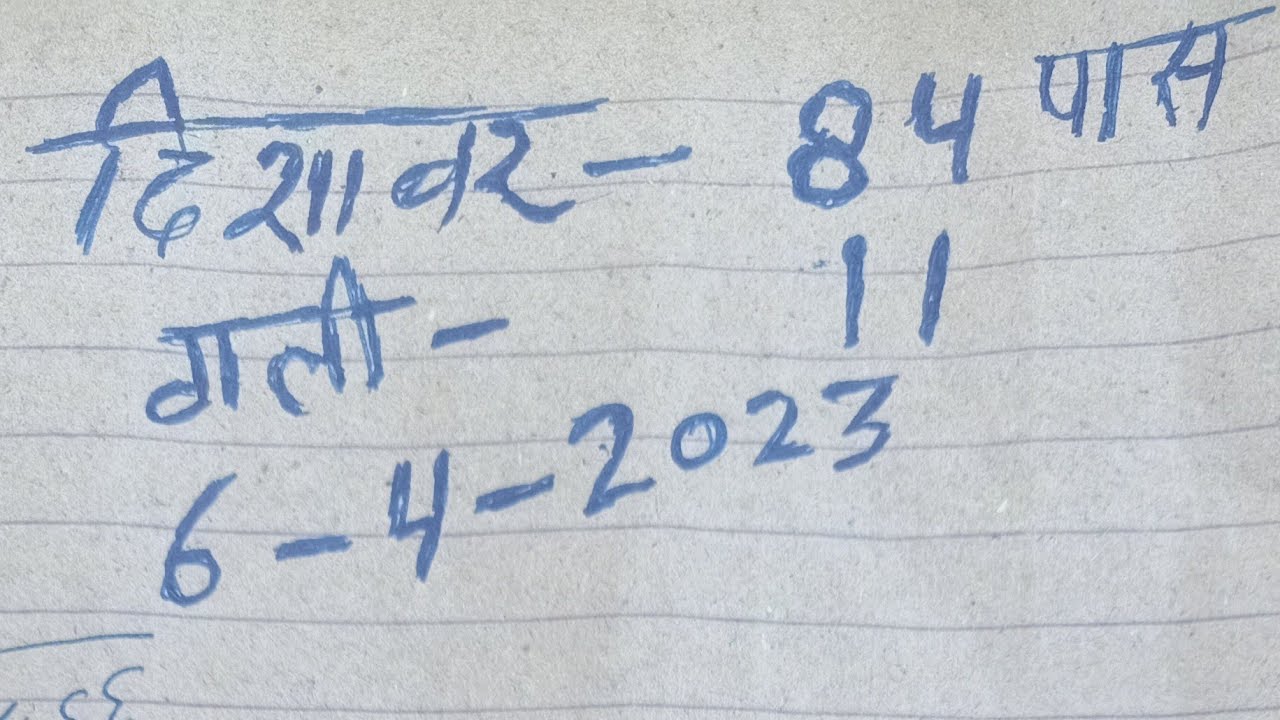 दिशावर - 84 पास
गली - 11
6-4-2023